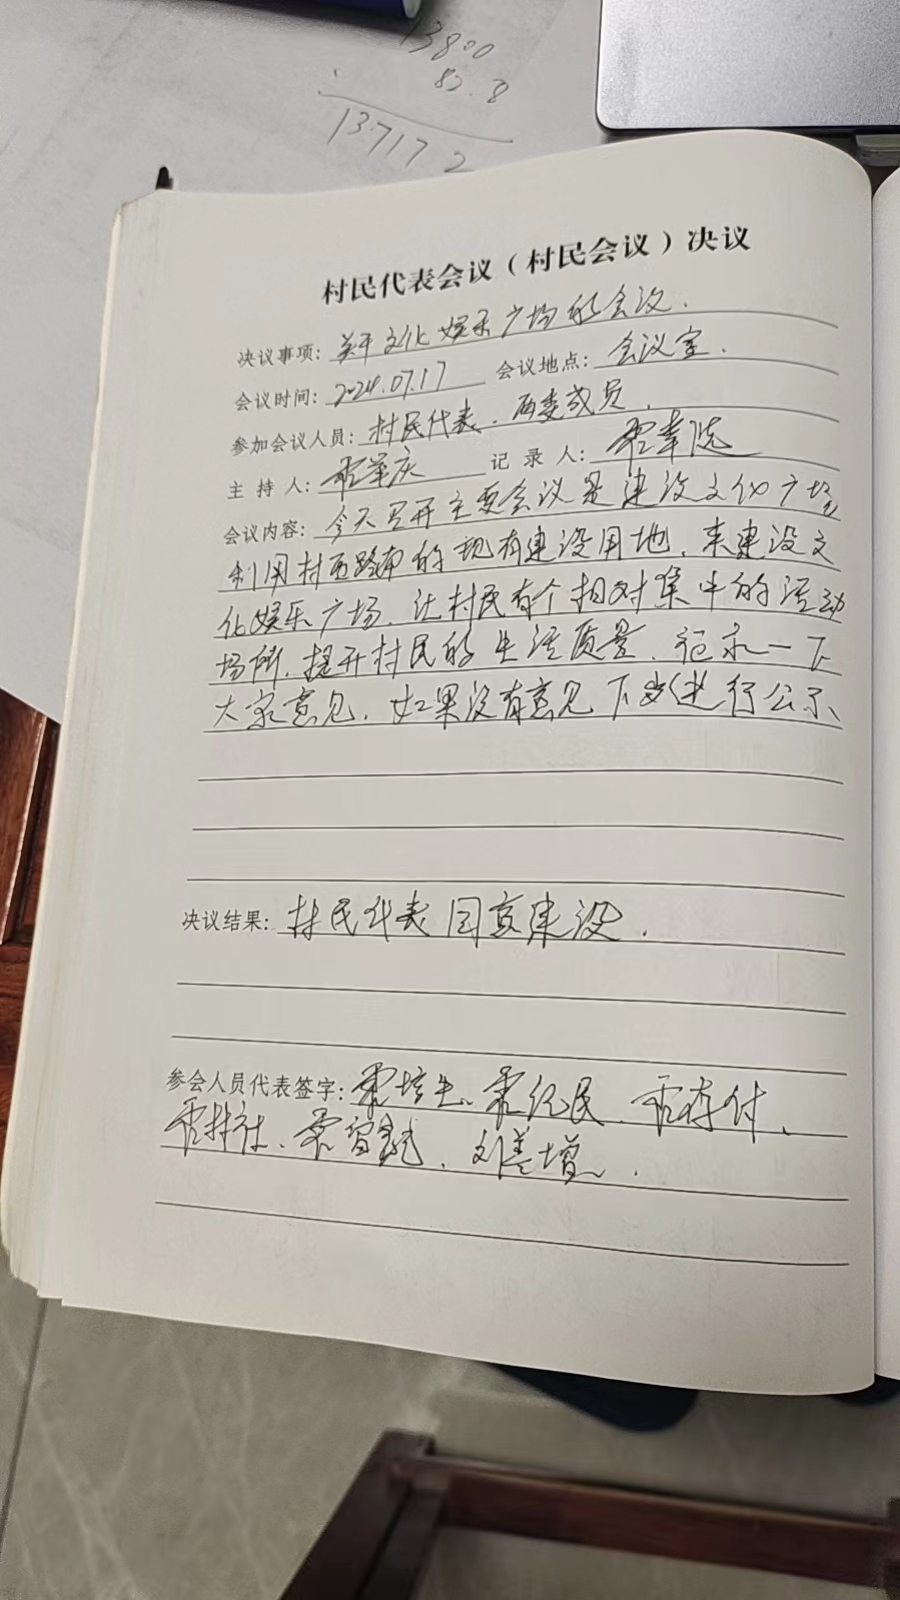 13800
82.8
13717 2
村民代表会议（村民会议）决议
决议事项：关于文化娱乐广场的会议.
会议时间：2024.07.17 会议地点：会议室.
参加会议人员：村民代表、两委成员.
主持人： 记录人：
会议内容：今天召开主要会议是建设文化广场
利用村西路南的现有建设用地，来建设文
化娱乐广场，让村民有个相对集中的活动
场所，提升村民的生活质量，记录一下
大家意见，如果没有意见下步进行公示
决议结果：村民代表同意建设.
参会人员代表签字：